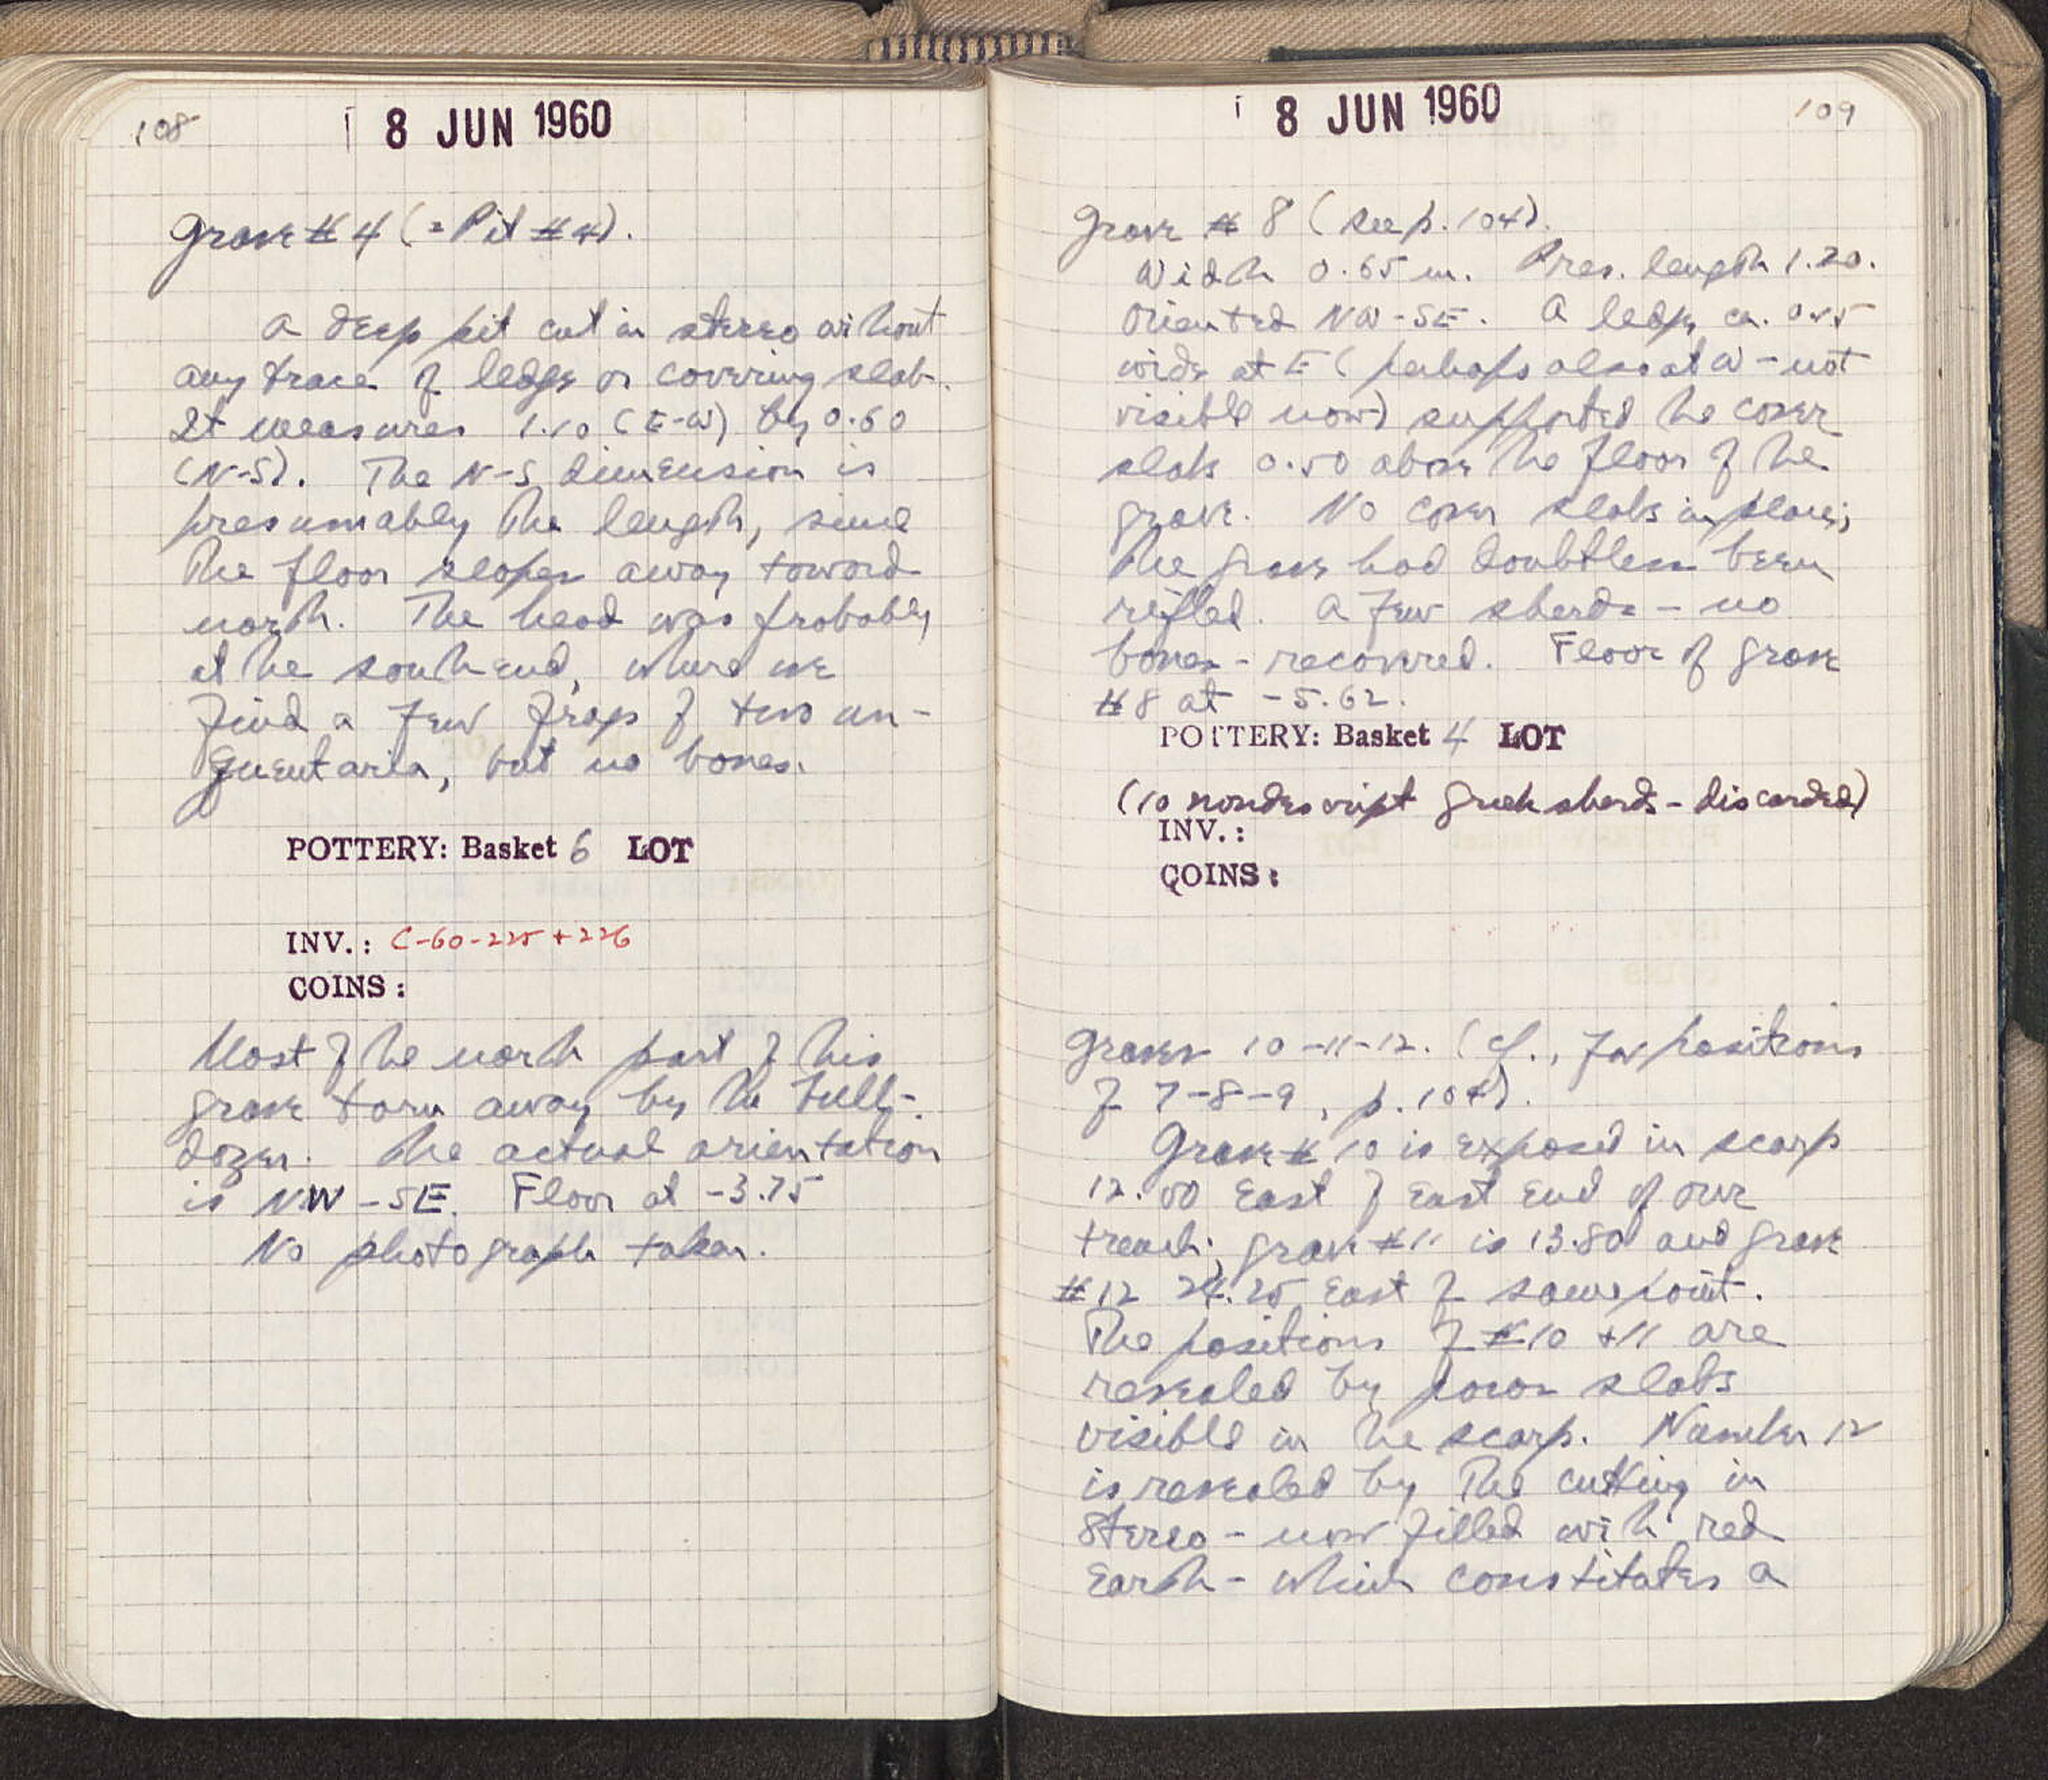 108
8 JUN 1960
Grave #4 (= Pit #4).
A deep pit cut in stereo without
any trace of ledge or covering slab.
It measures 1.10 (E-W) by 0.60
(N-S). The N-S dimension is
presumably the length, since
the floor slopes away toward
north. The head was probably
at the south end, where we
find a few frags of two un-
guentaria, but no bones.
POTTERY: Basket 6 LOT
INV.: C-60-225 + 226
COINS:
Most of the north part of this
grave torn away by the bull-
dozer. The actual orientation
is NW-SE. Floor at -3.75
No photograph taken.
109
8 JUN 1960
Grave #8 (see p. 104).
Width 0.65 m. Pres. length 1.20.
Oriented NW-SE. A ledge, ca.
wide at E (perhaps also at W - not
visible now) supported the cover
slabs 0.50 above the floor of the
grave. No cover slabs in place;
the grave had doubtless been
rifled. A few sherds - no
bones - recovered. Floor of grave
#8 at -5.62.
POTTERY: Basket 4 LOT
(10 nondescript Greek sherds - discarded)
INV.:
COINS:
Graves 10-11-12. (cf., for positions
of 7-8-9, p. 104).
Grave #10 is exposed in scarp
12.00 East of East End of our
trench; grave #11 is 13.80 and grave
#12 24.25 East of same point.
The positions of #10 + 11 are
revealed by poros slabs
visible in the scarp. Number 12
is revealed by the cutting in
stereo - now filled with red
Earth - which constitutes a